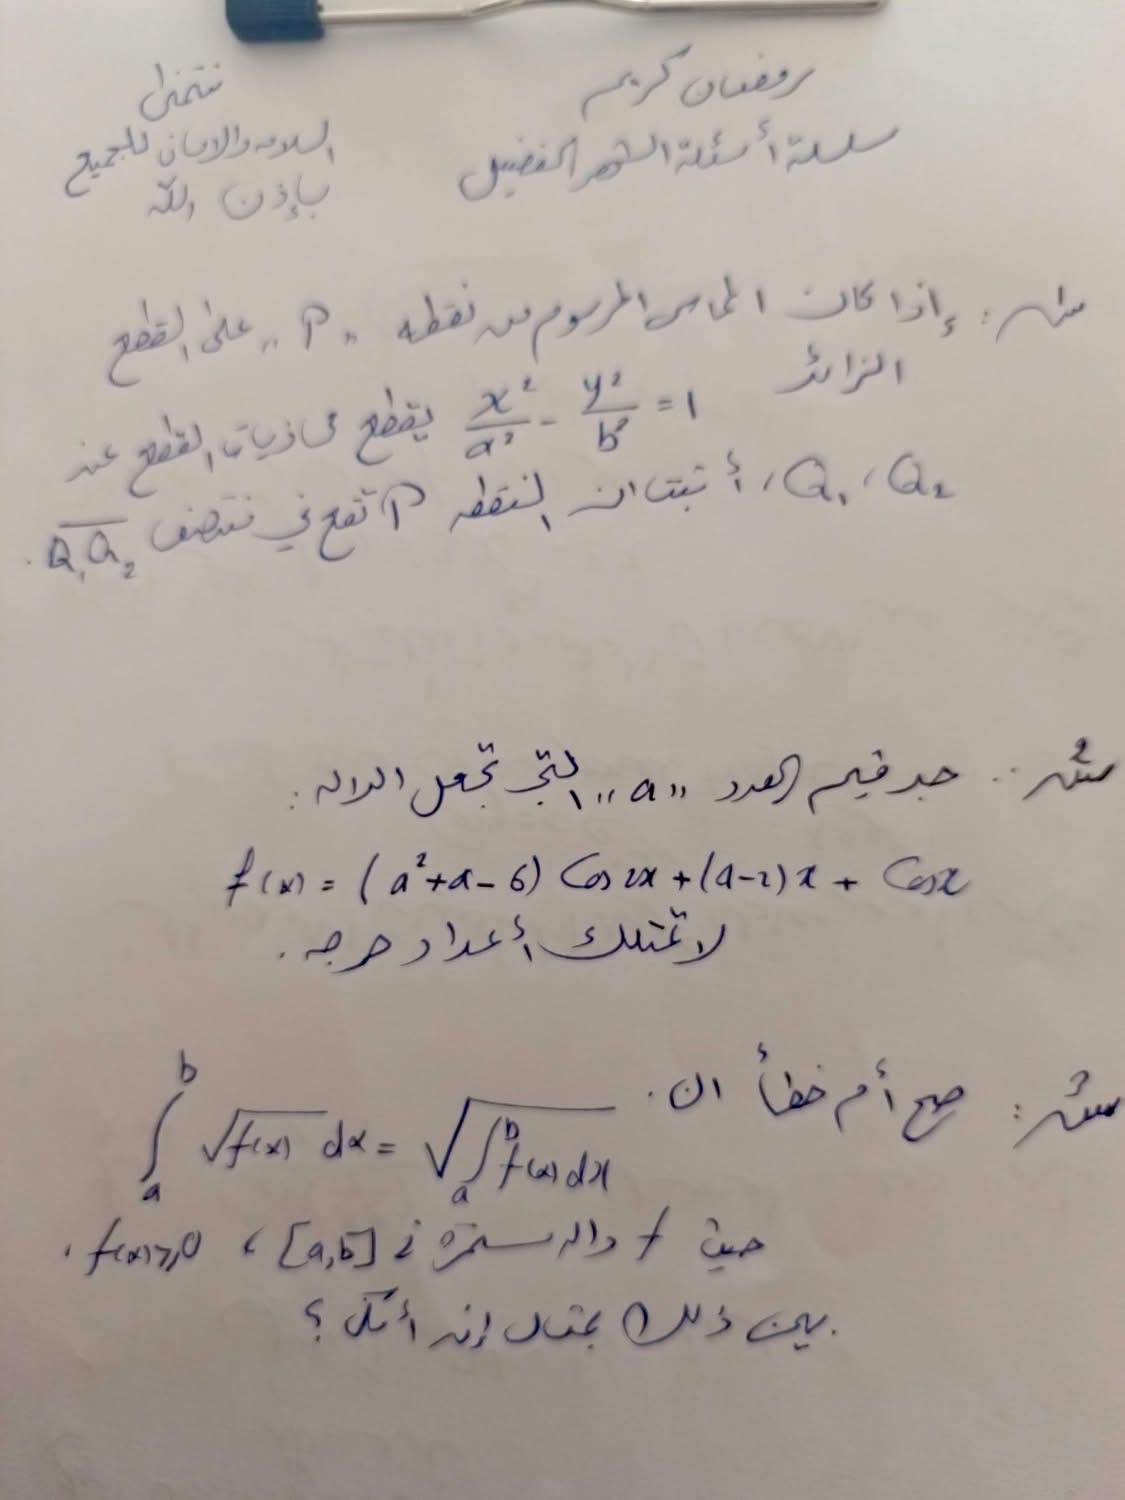 رمضان كريم
سلسلة أسئلة الشهر الفضيل
نتمنى
السلامه والامان للجميع
بإذن الله
س١: إذا كان المماس المرسوم من نقطه "P" على القطع
الزائد
x²/a² - y²/b² = 1 يقطع محاذيات القطع عند
Q₁ ، Q₂ ، أثبت ان النقطه P تقع في منتصف Q₁Q₂ .
س٢: جد قيم العدد "a" التي تجعل الداله :
f(x) = (a²+a-6) Cos 2x + (a-2)x + Cos x
لا تمتلك أعداد حرجه .
س٣: صح أم خطأ ان .
∫ₐᵇ √f(x) dx = √∫ₐᵇ f(x) dx
حيث f داله مستمره في [a,b] ، f(x)≥0 ،
بين ذلك بمثال إن أمكن ؟